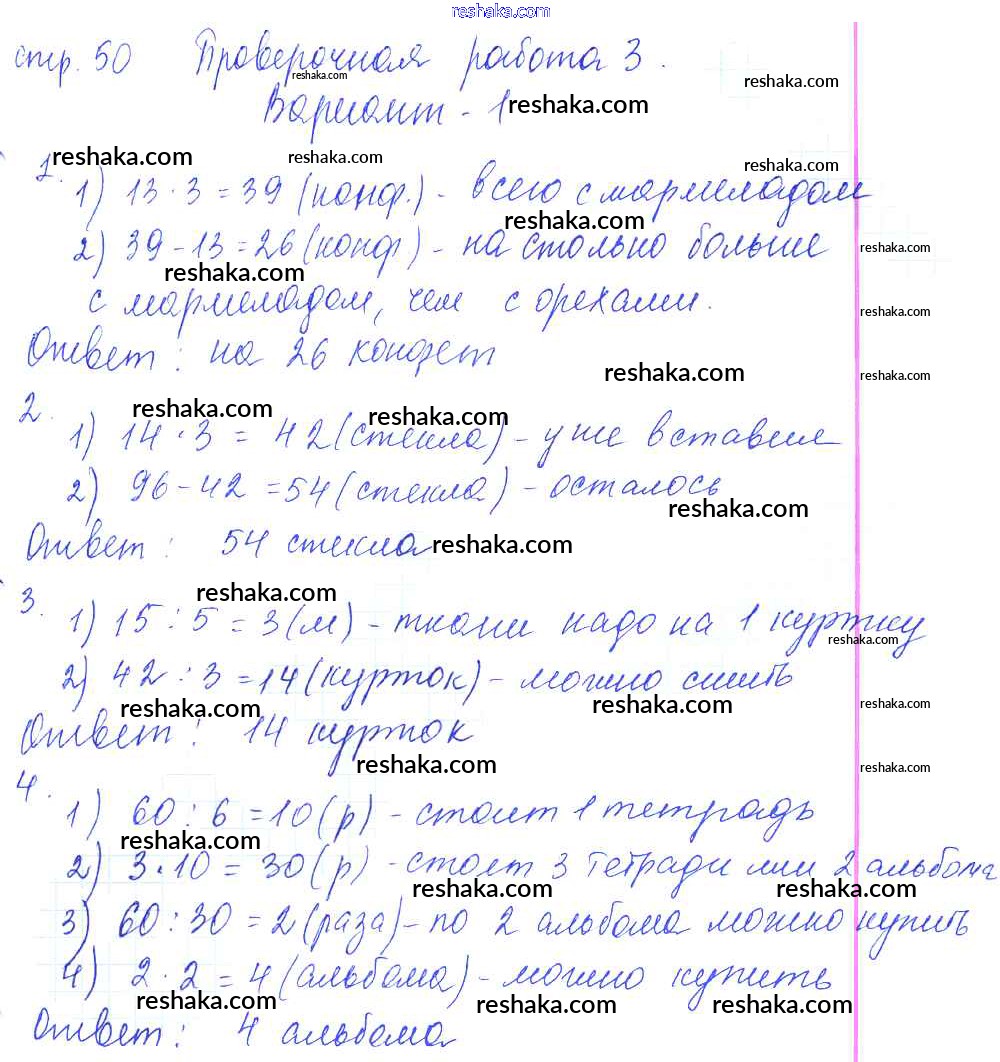 reshaka.com
стр. 50 Проверочная работа 3.
reshaka.com reshaka.com
Вариант - 1 reshaka.com
reshaka.com reshaka.com reshaka.com
1. 1) 13 · 3 = 39 (конф.) - всего с мармеладом
reshaka.com
2) 39 - 13 = 26 (конф) - на столько больше
reshaka.com reshaka.com
с мармеладом, чем с орехами.
reshaka.com
Ответ: на 26 конфет
reshaka.com reshaka.com
2. reshaka.com reshaka.com
1) 14 · 3 = 42 (стекла) - уже вставил
2) 96 - 42 = 54 (стекла) - осталось
reshaka.com
Ответ: 54 стекла reshaka.com
3. reshaka.com
1) 15 : 5 = 3 (м) - ткани надо на 1 куртку
reshaka.com
2) 42 : 3 = 14 (курток) - можно сшить
reshaka.com reshaka.com reshaka.com
Ответ: 14 курток
reshaka.com reshaka.com
4. 1) 60 : 6 = 10 (р) - стоит 1 тетрадь
reshaka.com
2) 3 · 10 = 30 (р) - стоят 3 тетради или 2 альбома
reshaka.com reshaka.com
3) 60 : 30 = 2 (раза) - по 2 альбома можно купить
4) 2 · 2 = 4 (альбома) - можно купить
reshaka.com reshaka.com reshaka.com
Ответ: 4 альбома